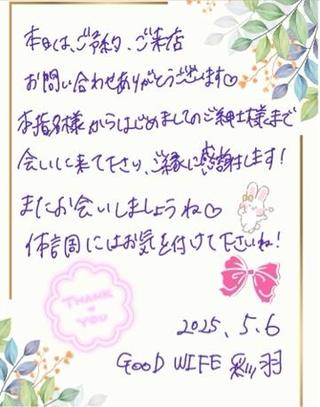 本日は、ご予約、ご来店
お問い合わせありがとうございます♡
本指名様からはじめましてのご紳士様まで
会いに来て下さり、ご縁に感謝します!
またお会いしましょうね♡
体調にはお気を付けて下さいね!
THANK
YOU
2025.5.6
GOOD WIFE 彩羽